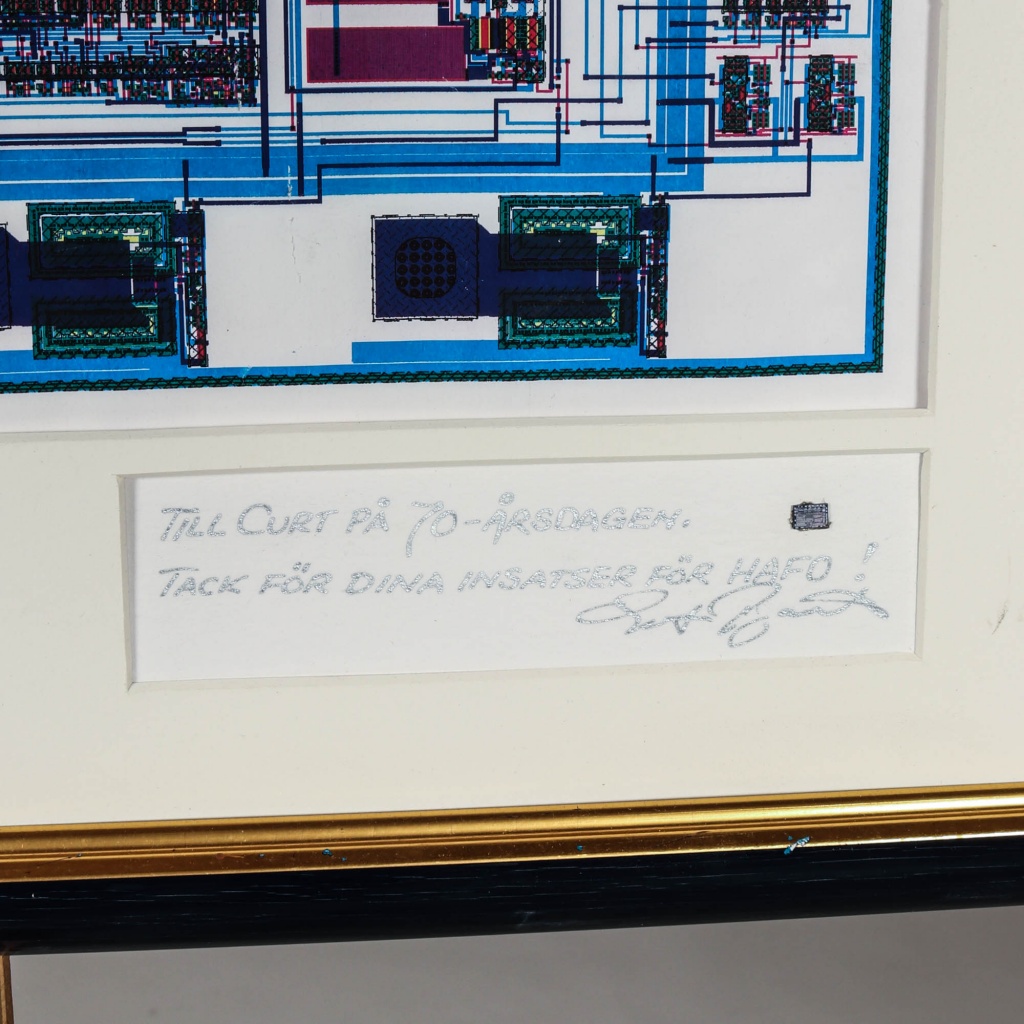 TILL CURT PÅ 70-ÅRSDAGEN.
TACK FÖR DINA INSATSER FÖR HAFO!